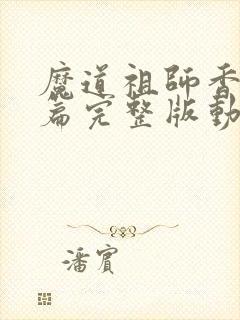 魔道祖師香
篇完整版動
潘賓